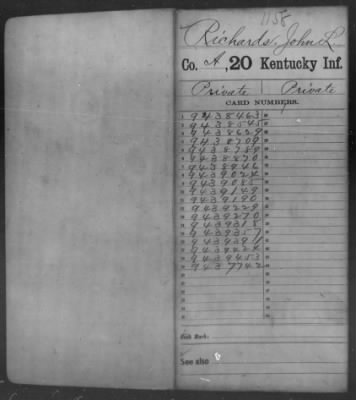 1158
Richards, John L
Co. A, 20 Kentucky Inf.
Private | Private
CARD NUMBERS.
1 9438463
2 9438545
3 9438629
4 9438709
5 9438789
6 9438870
7 9438946
8 9439024
9 9439085
10 9439149
11 9439190
12 9439229
13 9439270
14 9439318
15 9439357
16 9439391
17 9439424
18 9439453
19 9437742
Book Mark:
See also